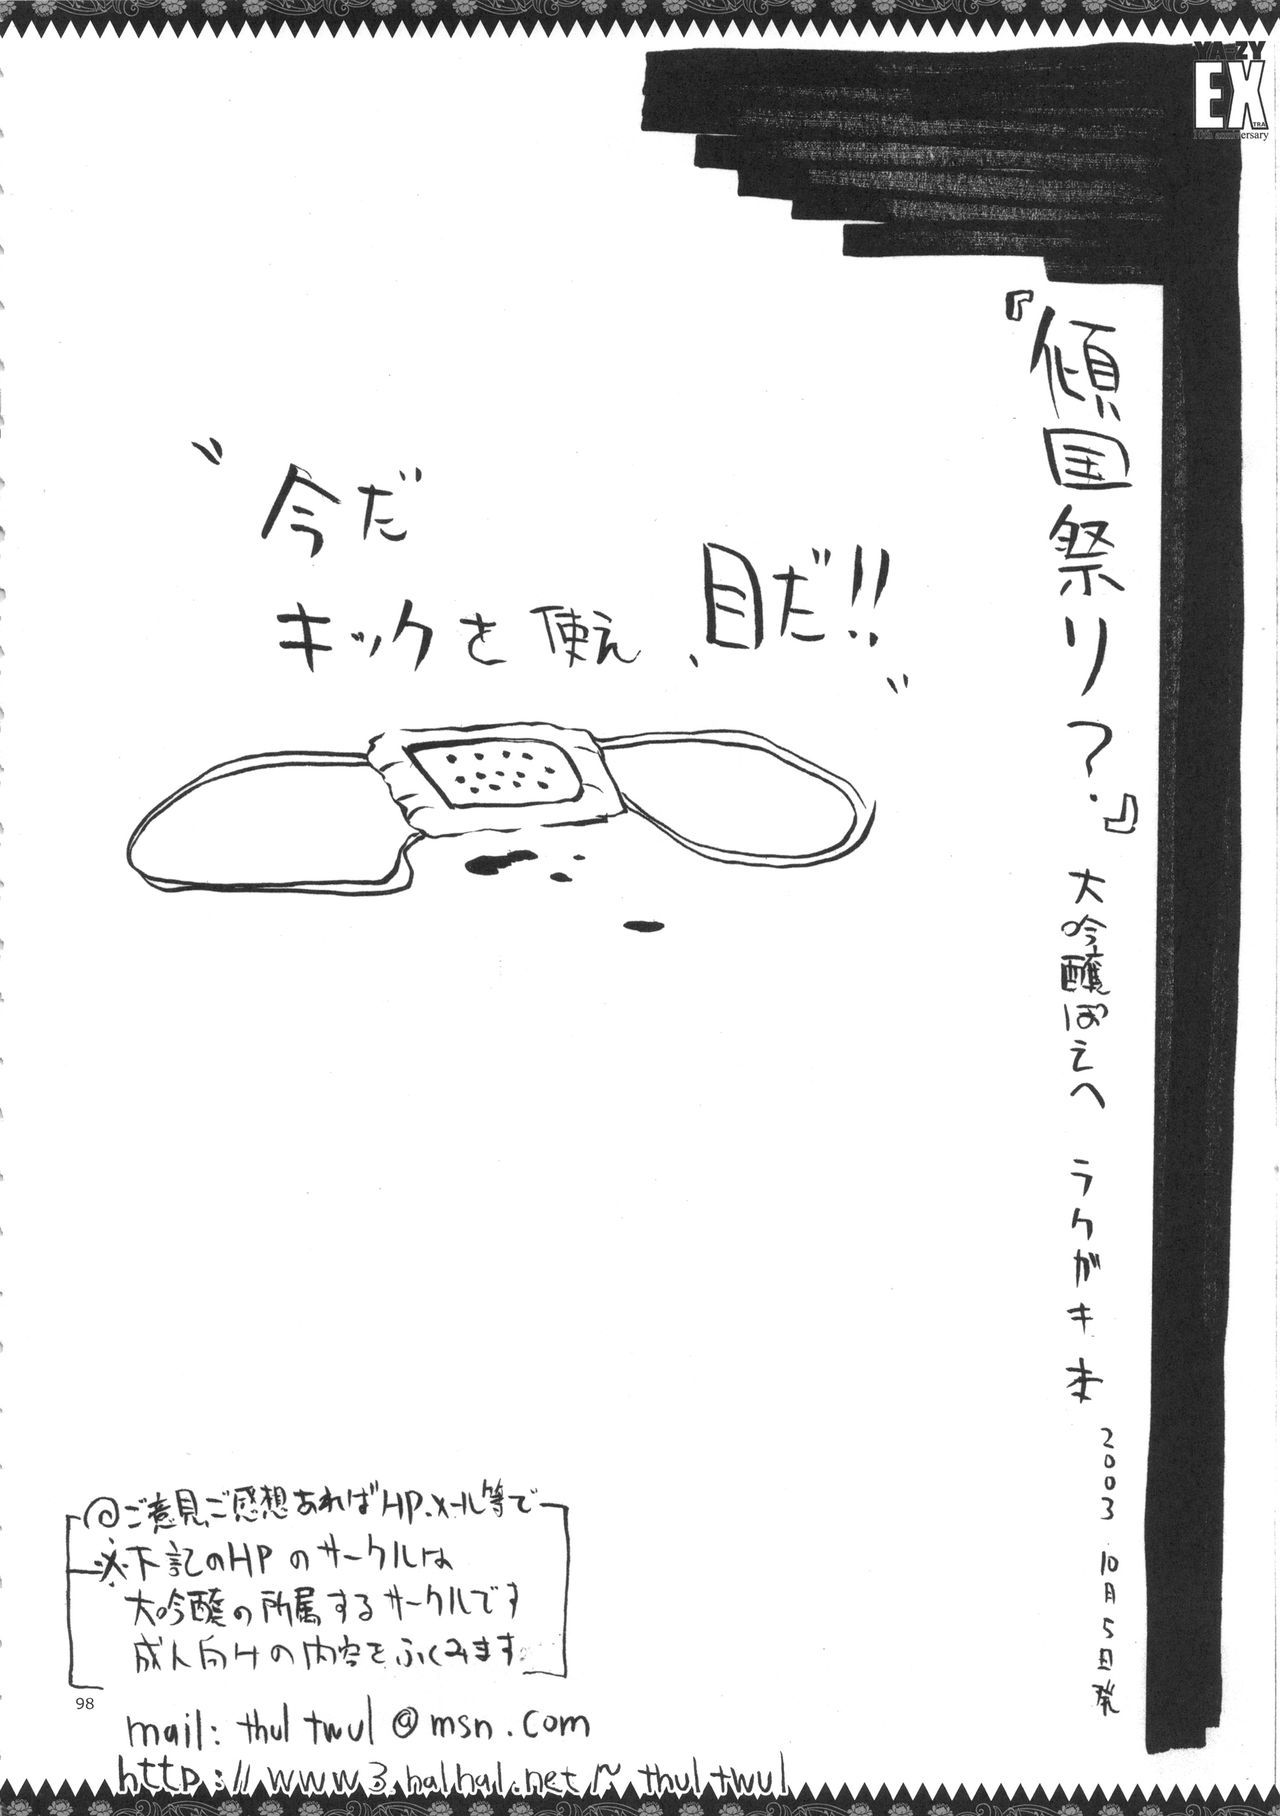 YA-ZY
EXTRA
10th anniversary
『傾国祭り？』 大吟醸ぽえへ ラクガキ本
2003 10月5日発
"今だ
キックを使え、目だ!!"
@ご意見、ご感想あればHP、メール等で
※下記のHPのサークルは
大吟醸の所属するサークルです
成人向けの内容をふくみます
98
mail: thultwul@msn.com
http://www3.halhal.net/~thultwul